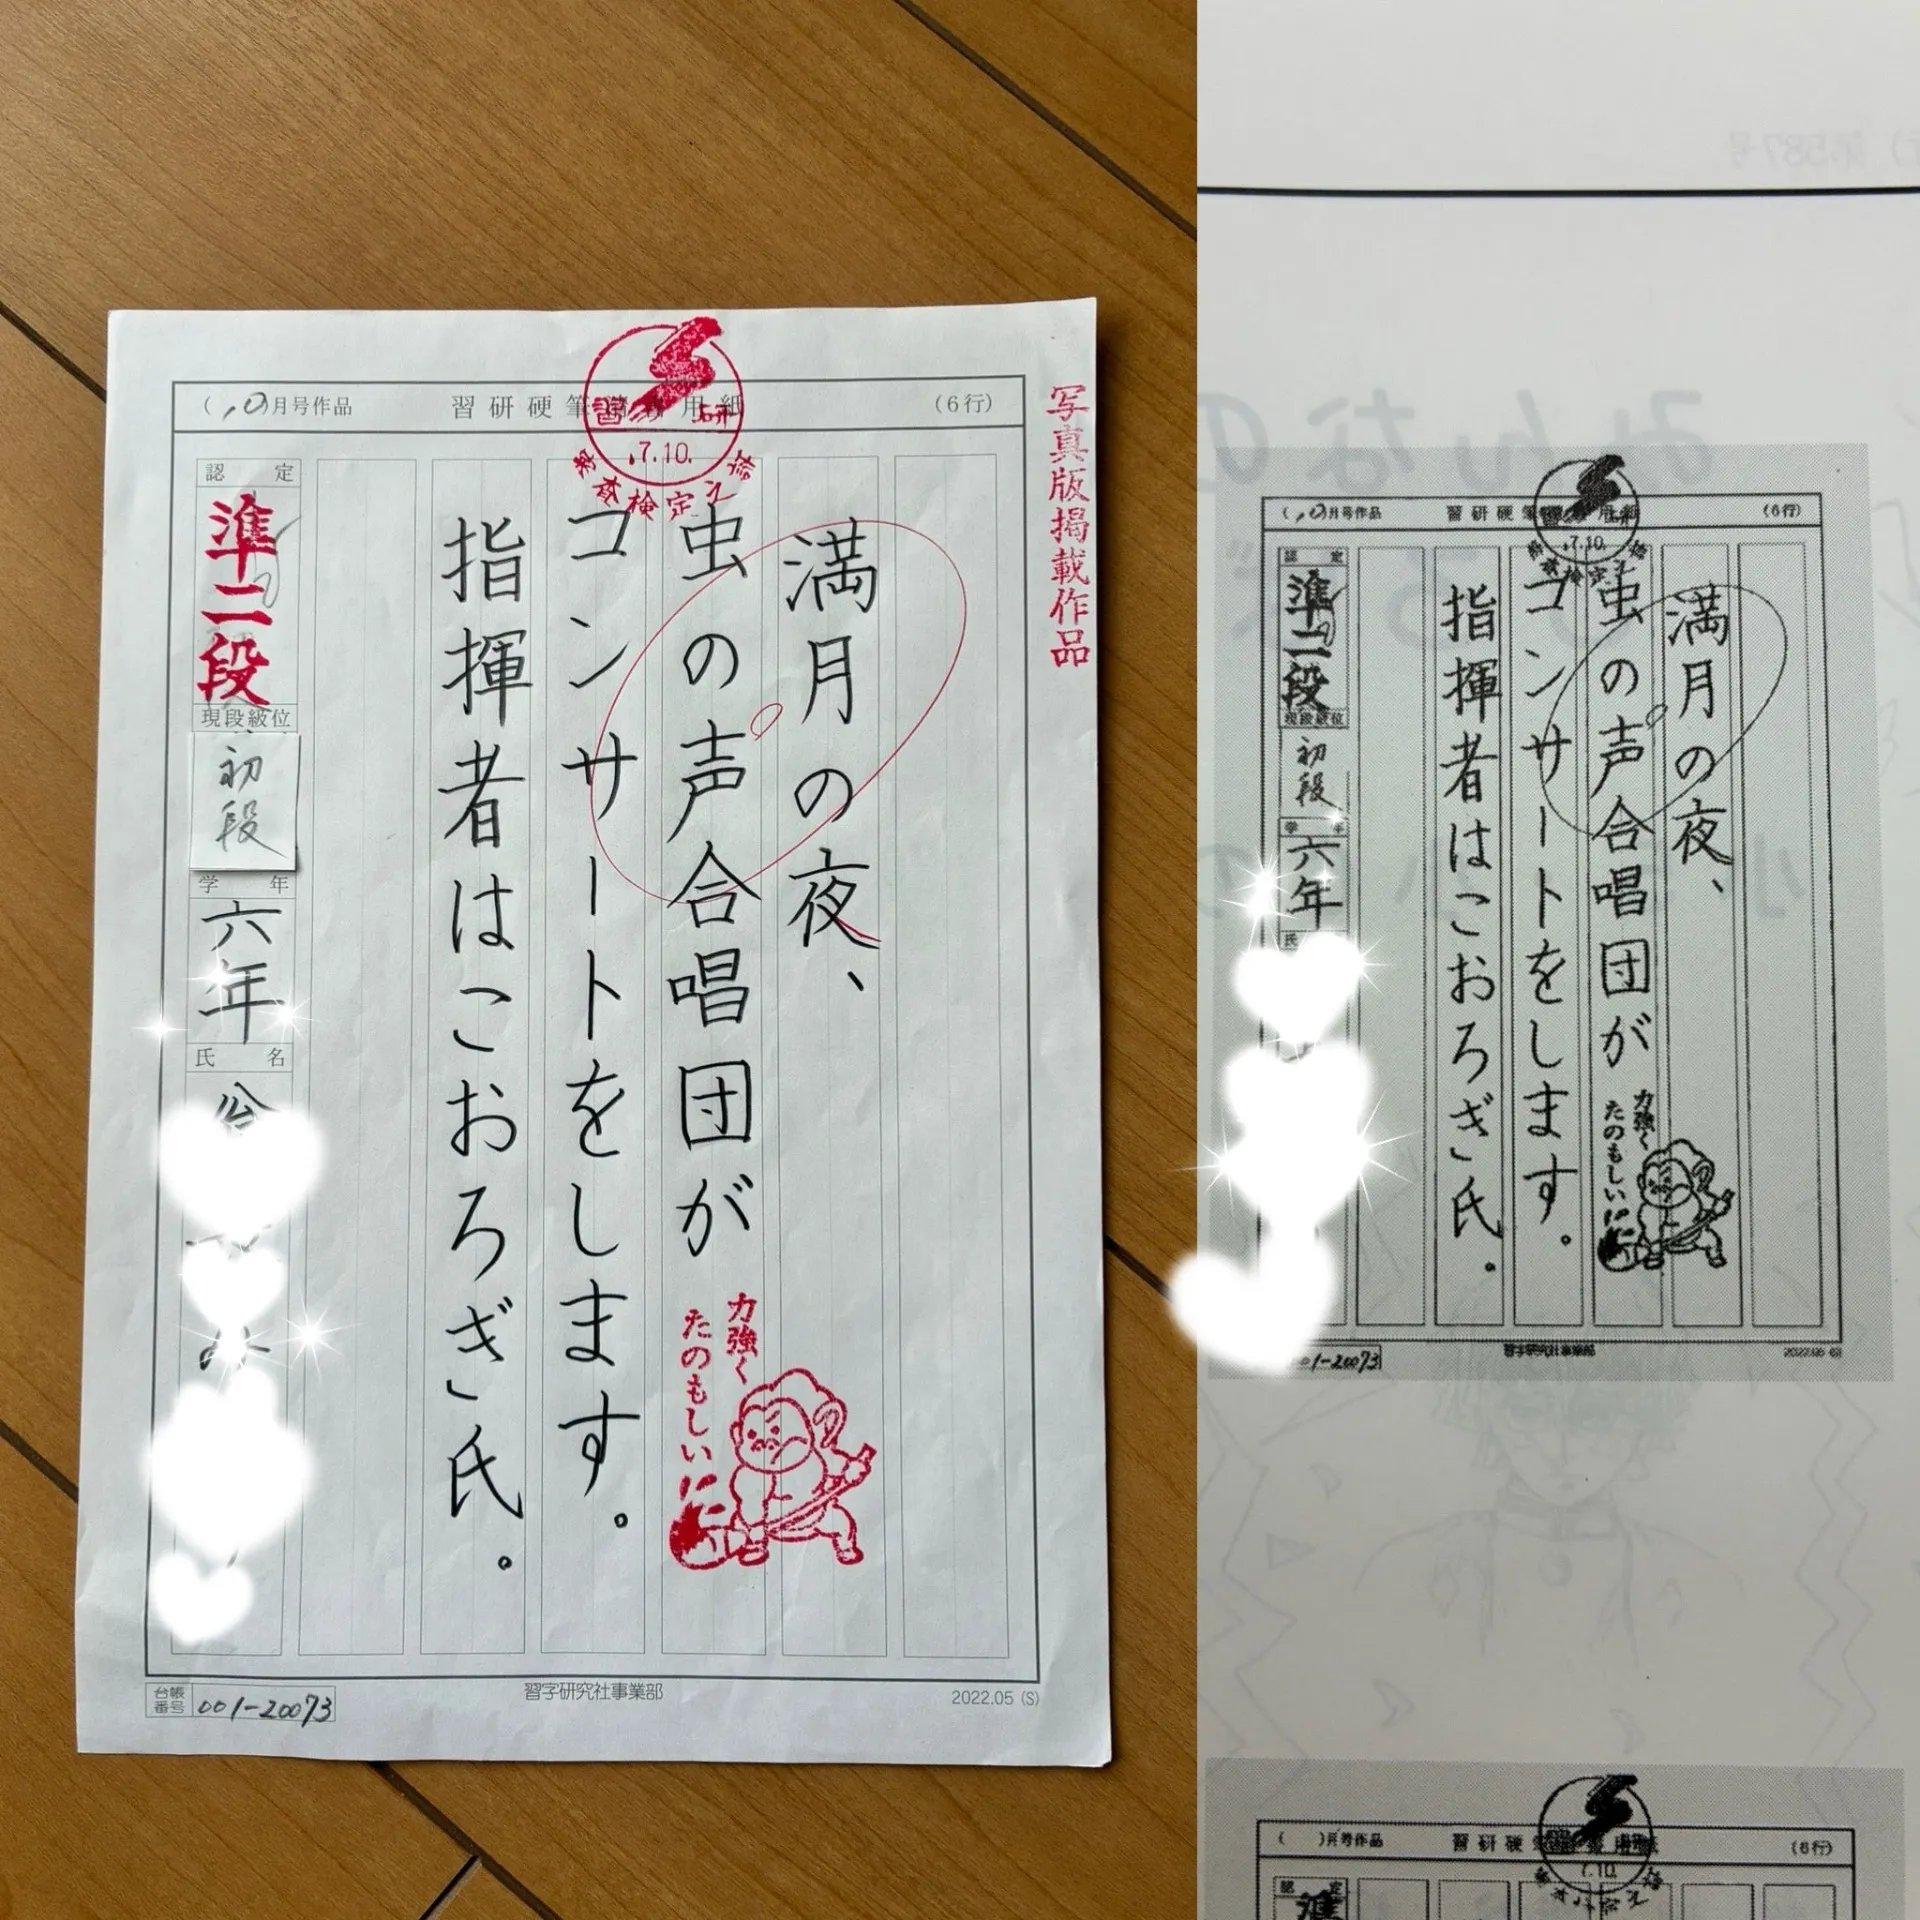 写真版掲載作品
(10)月号作品
習研硬筆清書用紙
(6行)
習研
7.10.
検定之
満月の夜、
虫の声合唱団が
コンサートをします。
指揮者はこおろぎ氏。
力強く
たのもしいに
認定
準二段
現段級位
初段
学年
六年
氏名
台帳番号
001-20073
習字研究社事業部
2022.05 (S)
第587号
みんなの
(10)月号作品
習研硬筆
用紙
(6行)
7.10.
検定之
満月の夜、
虫の声合唱団が
コンサートをします。
指揮者はこおろぎ氏。
力強く
たのもしいに
認定
準二段
現段級位
初段
学年
六年
氏
01-20073
習字研究社事業部
2022.05 (S)
( )月号作品
習研硬
(6行)
認定
準